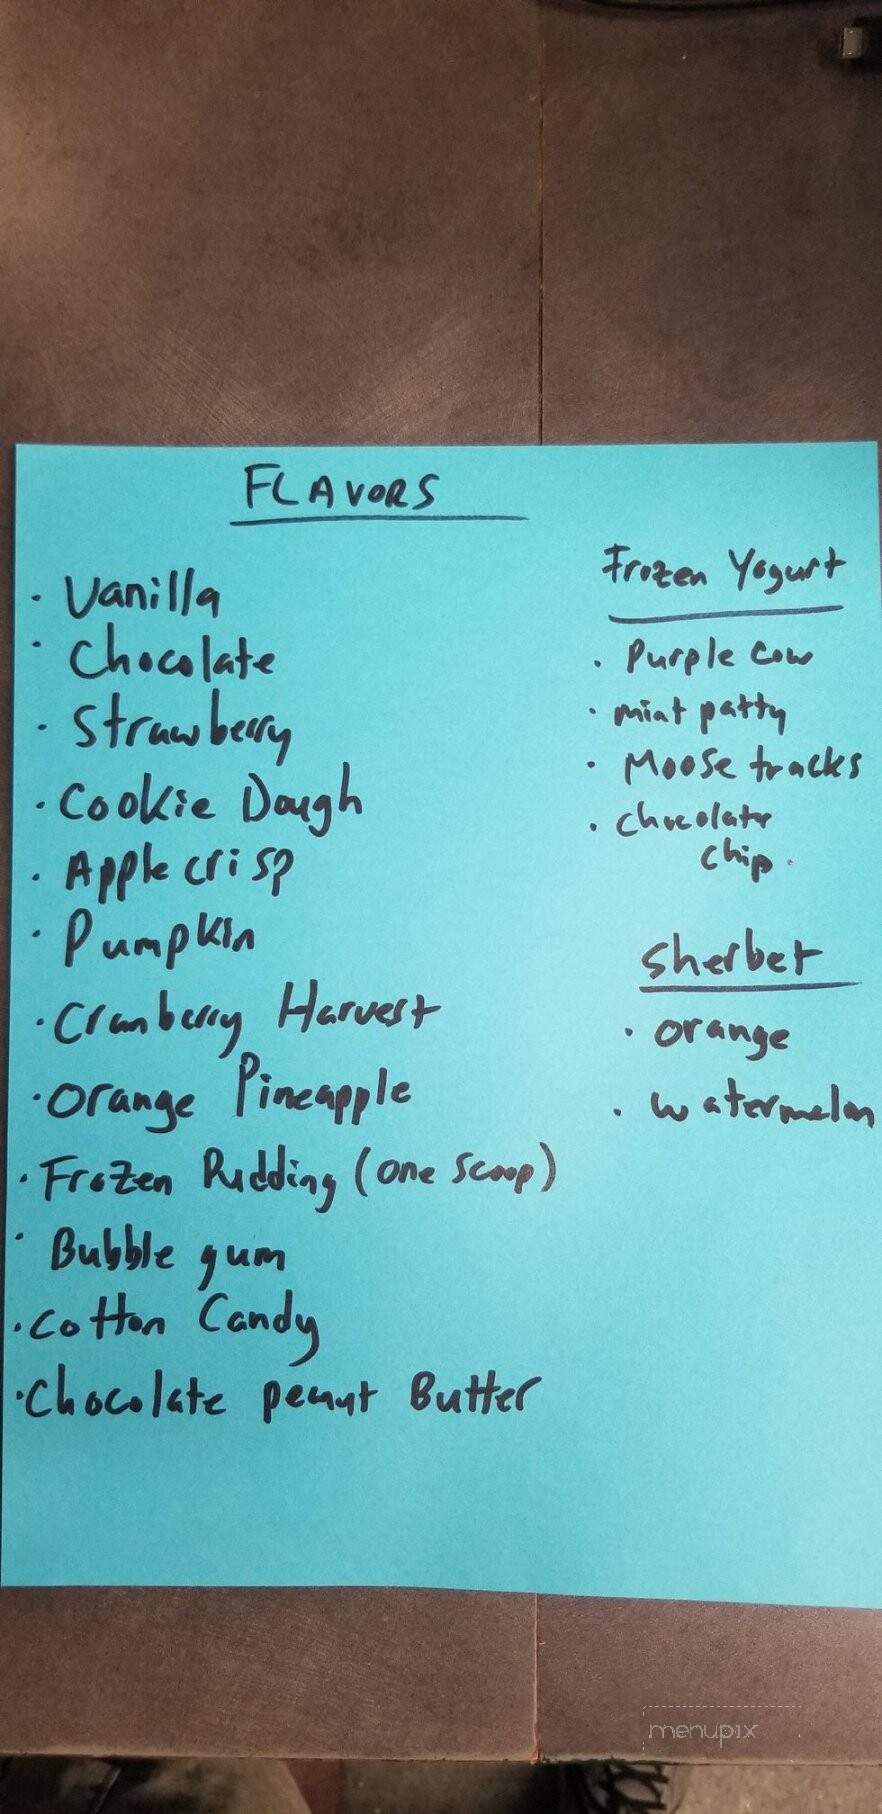 FLAVORS
· Vanilla
· Chocolate
· Strawberry
· Cookie Dough
· Apple crisp
· Pumpkin
· Cranberry Harvest
· Orange Pineapple
· Frozen Pudding (one scoop)
· Bubble gum
· Cotton Candy
· Chocolate peanut Butter
Frozen Yogurt
· Purple Cow
· mint patty
· Moose tracks
· chocolate
chip.
Sherbet
· orange
· watermelon
menupix